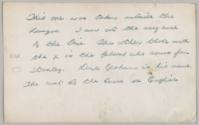 This one was taken outside the
hangar. I am at the very end
of the line. The other bloke with
the x is the fellow who comes from
Stanley. Graham is his name.
The rest of the lines is English